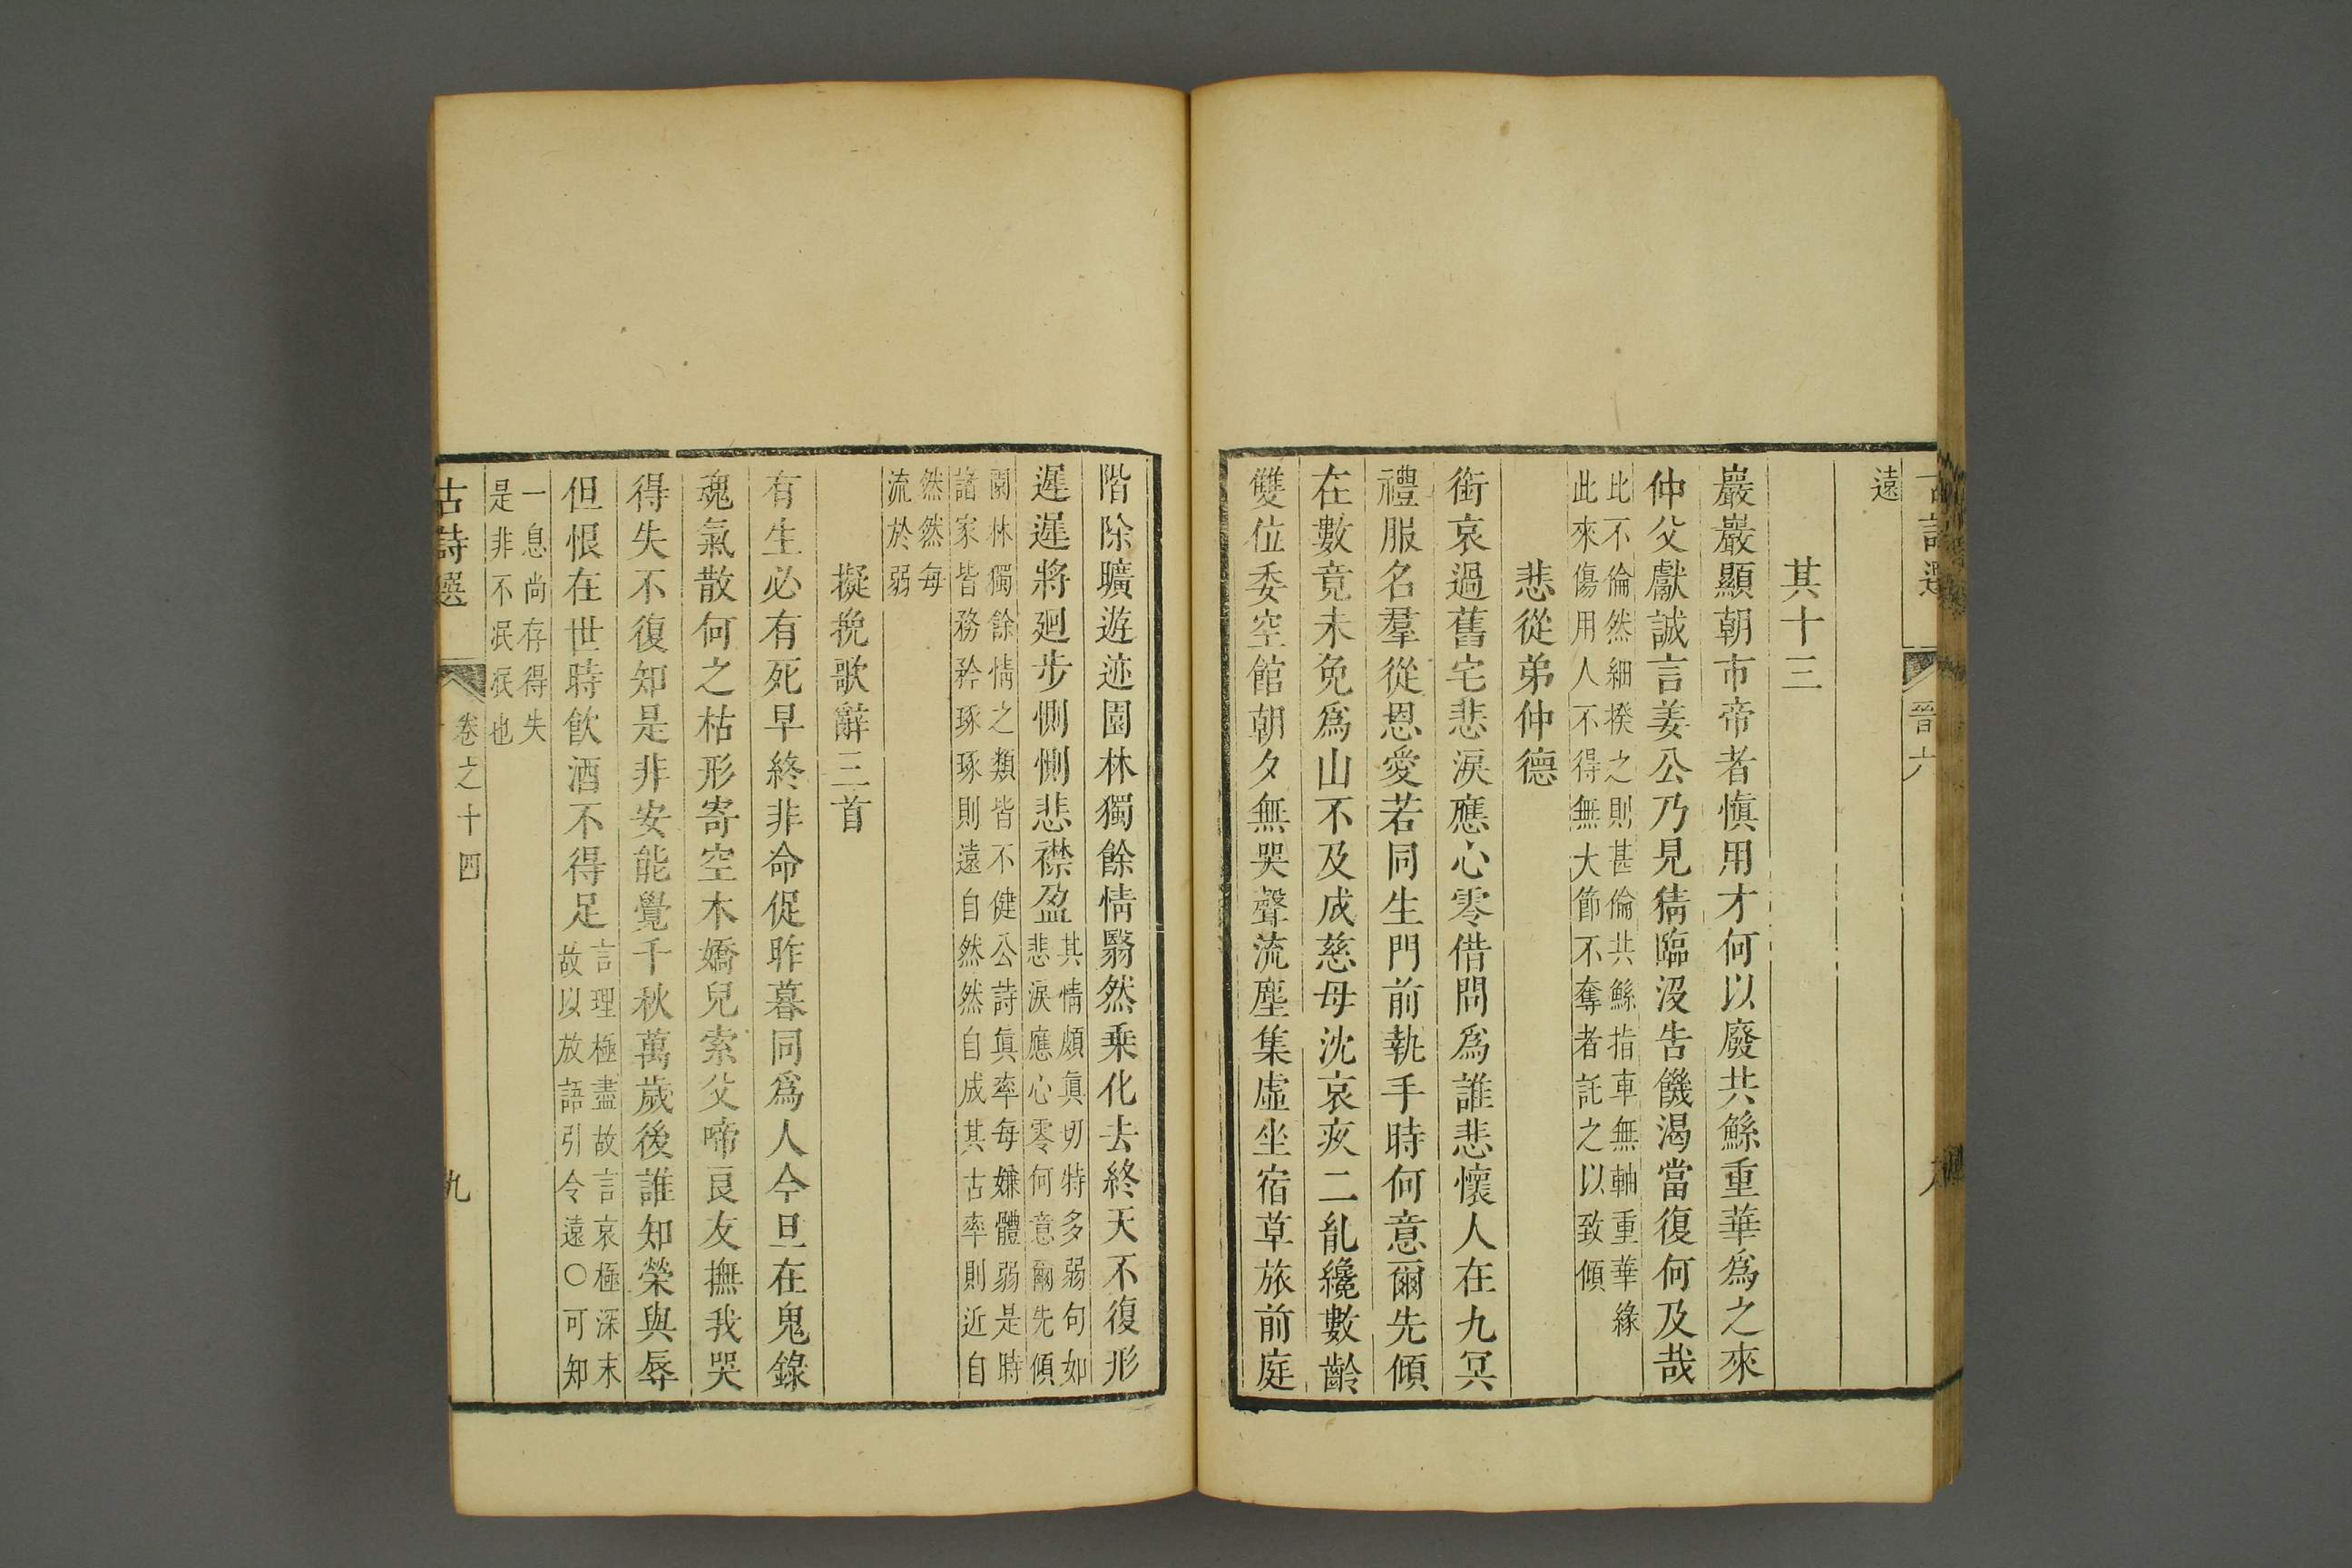 古詩選 晉六 八
遠
其十三
巖巖顯朝市帝者愼用才何以廢共鯀重華爲之來
仲父獻誠言姜公乃見猜臨沒吿饑渴當復何及哉
比不倫然細揆之則甚倫共鯀指車無軸重華緣
此來傷用人不得無大節不奪者託之以致傾
悲從弟仲德
銜哀過舊宅悲淚應心零借問爲誰悲懷人在九冥
禮服名羣從恩愛若同生門前執手時何意爾先傾
在數竟未免爲山不及成慈母沈哀疚二胤纔數齡
雙位委空館朝夕無哭聲流塵集虛坐宿草旅前庭
階除曠遊迹園林獨餘情翳然乗化去終天不復形
遲遲將廻步惻惻悲襟盈
其情頗眞切特多弱句如
悲淚應心零何意爾先傾
園林獨餘情之類皆不健公詩眞率每嫌體弱是時
諸家皆務矜琢琢則遠自然然自成其古率則近自
然然每
流於弱
擬挽歌辭三首
有生必有死早終非命促昨暮同爲人今旦在鬼錄
魂氣散何之枯形寄空木嬌兒索父啼良友撫我哭
得失不復知是非安能覺千秋萬歲後誰知榮與辱
但恨在世時飮酒不得足
言理極盡故言哀極深末
故以放語引令遠○可知
一息尚存得失
是非不泯泯也
古詩選 卷之十四 九